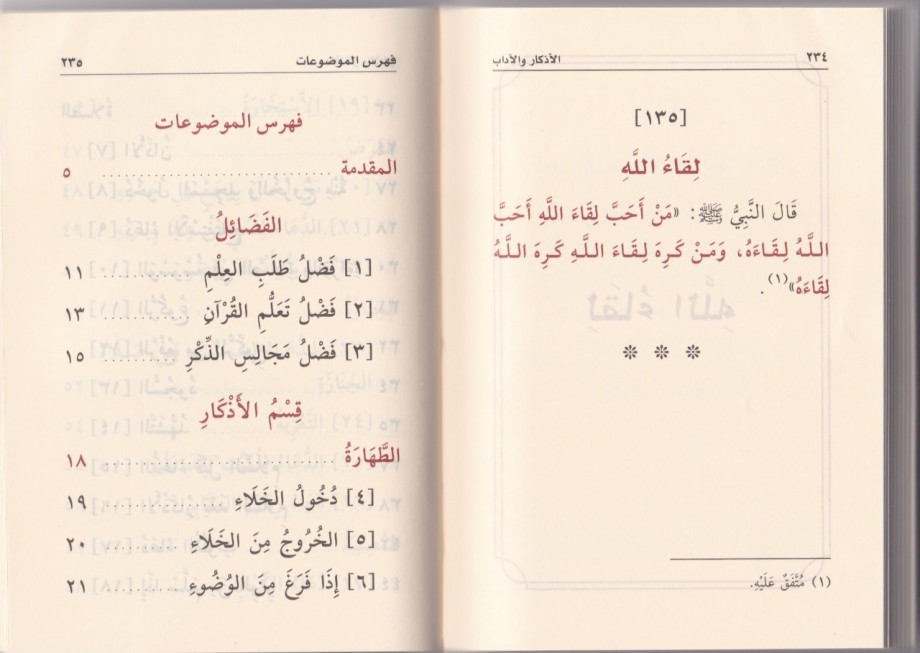 ٢٣٤ الأذكار والآداب
[١٣٥]
لِقَاءُ اللَّهِ
قَالَ النَّبِيُّ ﷺ: «مَنْ أَحَبَّ لِقَاءَ اللَّهِ أَحَبَّ
اللَّهُ لِقَاءَهُ، وَمَنْ كَرِهَ لِقَاءَ اللَّهِ كَرِهَ اللَّهُ
لِقَاءَهُ»(١).
(١) مُتَّفَقٌ عَلَيْهِ.
فهرس الموضوعات ٢٣٥
فهرس الموضوعات
المقدمة ٥
الفَضَائِلُ
[١] فَضْلُ طَلَبِ العِلْمِ ١١
[٢] فَضْلُ تَعَلُّمِ القُرْآنِ ١٣
[٣] فَضْلُ مَجَالِسِ الذِّكْرِ ١٥
قِسْمُ الأَذْكَارِ
الطَّهَارَةُ ١٨
[٤] دُخُولُ الخَلَاءِ ١٩
[٥] الخُرُوجُ مِنَ الخَلَاءِ ٢٠
[٦] إِذَا فَرَغَ مِنَ الوُضُوءِ ٢١